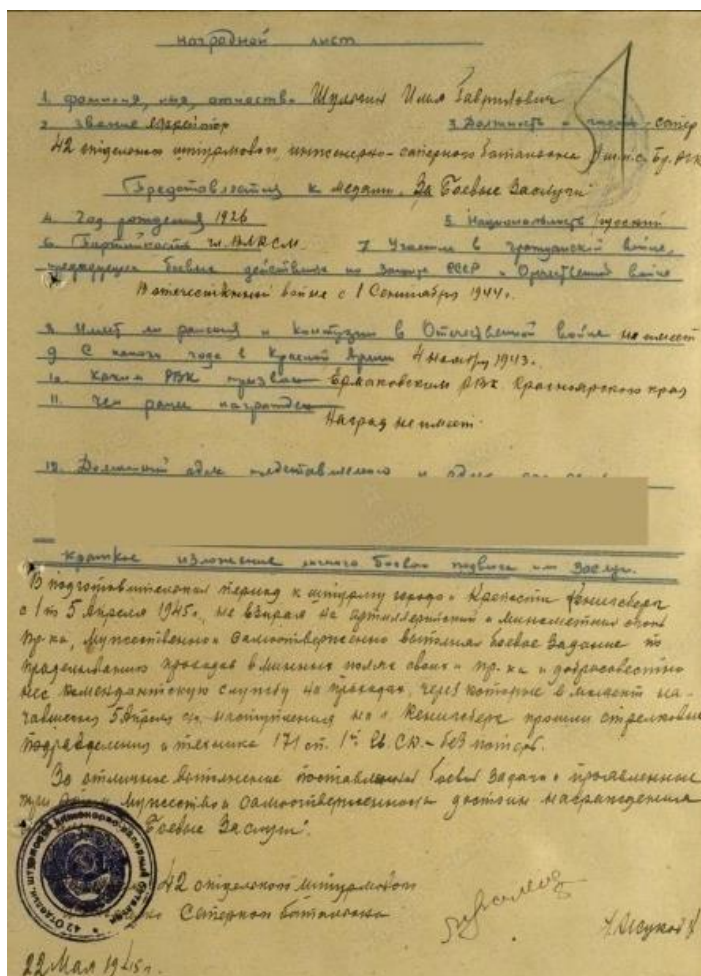 Наградной лист
1. Фамилия, имя, отчество Шулогин Илья Гаврилович
2 звание ефрейтор 3 Должность и часть - сапер
42 отдельного штурмового инженерно-саперного батальона
Представляется к медали "За Боевые Заслуги"
4. Год рождения 1926 5. Национальность русский
6. Партийность чл. ВЛКСМ. 7 Участие в гражданской войне,
боевые действия по защите СССР и Отечественной войне
В отечественной войне с 1 Сентября 1944 г.
8 Имеет ли ранения и контузии в Отечественной войне не имеет
9 С какого года в Красной Армии 4 ноября 1943 г.
10. Каким РВК призван Ермаковским РВК Красноярского края
11. Чем ранее награжден
Наград не имеет.
12. Домашний адрес представляемого и адрес
Краткое изложение личного боевого подвига или заслуг.
В подготовительный период к штурму города и Крепости Кенигсберг
с 1 по 5 Апреля 1945 г., не взирая на артиллерийский и минометный огонь
пр-ка, мужественно и самоотверженно выполнял боевое задание по
проделыванию проходов в минных полях своих и пр-ка и добросовестно
нес комендантскую службу на проходах, через которые в момент на-
чавшегося 5 Апреля наступления на г. Кенигсберг прошли стрелковые
подразделения и техника 171 сп. 1й гв. СД. - без потерь.
За отличное выполнение поставленных боевых задач и проявленные
при этом мужество и самоотверженность достоин награждения
Боевые Заслуги".
42 отдельного штурмового
Саперного батальона
22 Мая 1945 г.